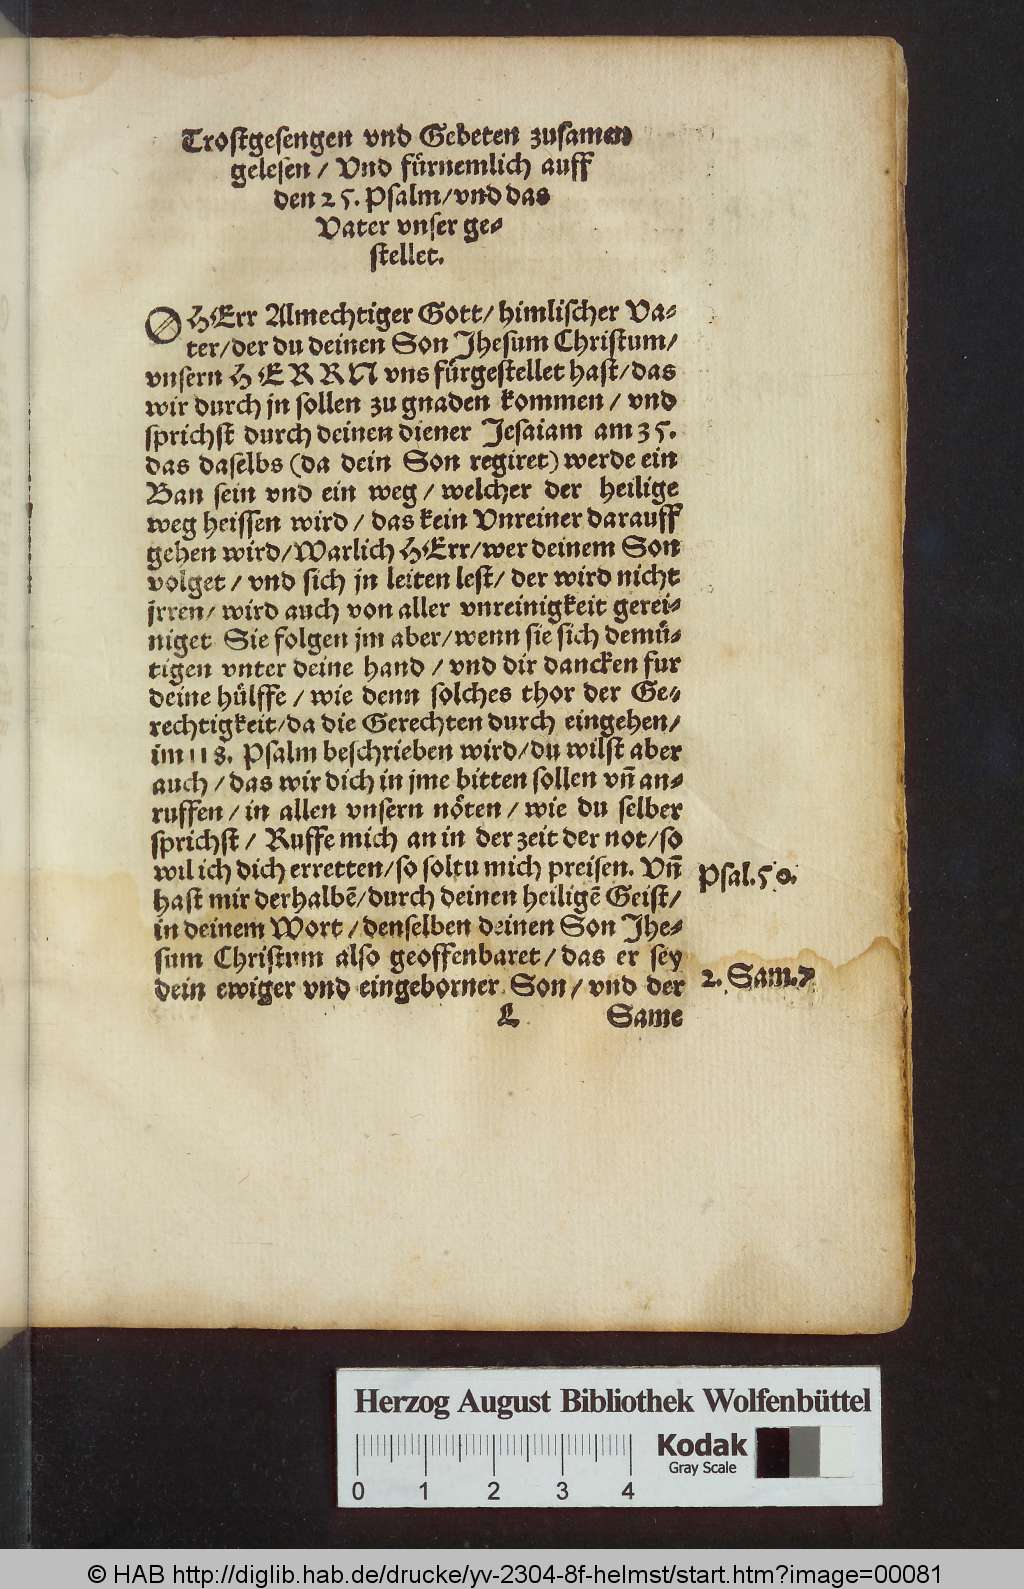 Trostgesengen vnd Gebeten zusamen
gelesen / Vnd fürnemlich auff
den 25. Psalm/vnd das
Vater vnser ge-
stellet.
O HErr Almechtiger Gott/ himlischer Va-
ter/der du deinen Son Jhesum Christum/
vnsern HERRN vns fürgestellet hast/das
wir durch jn sollen zu gnaden kommen / vnd
sprichst durch deinen diener Jesaiam am 35.
das daselbs (da dein Son regiret) werde ein
Ban sein vnd ein weg / welcher der heilige
weg heissen wird / das kein Vnreiner darauff
gehen wird/Warlich HErr/wer deinem Son
volget / vnd sich jn leiten lest/ der wird nicht
jrren/ wird auch von aller vnreinigkeit gerei-
niget Sie folgen jm aber/wenn sie sich demü-
tigen vnter deine hand / vnd dir dancken fur
deine hülffe / wie denn solches thor der Ge-
rechtigkeit/da die Gerechten durch eingehen/
im 118. Psalm beschrieben wird/du wilst aber
auch / das wir dich in jme bitten sollen vñ an-
ruffen / in allen vnsern nöten / wie du selber
sprichst/ Ruffe mich an in der zeit der not/so
wil ich dich erretten/so soltu mich preisen. Vñ
hast mir derhalbē/durch deinen heiligē Geist/
in deinem Wort / denselben deinen Son Jhe-
sum Christum also geoffenbaret/ das er sey
dein ewiger vnd eingeborner Son / vnd der
L Same
Psal.50.
2. Sam.7
Herzog August Bibliothek Wolfenbüttel
Kodak
Gray Scale
0 1 2 3 4
© HAB http://diglib.hab.de/drucke/yv-2304-8f-helmst/start.htm?image=00081